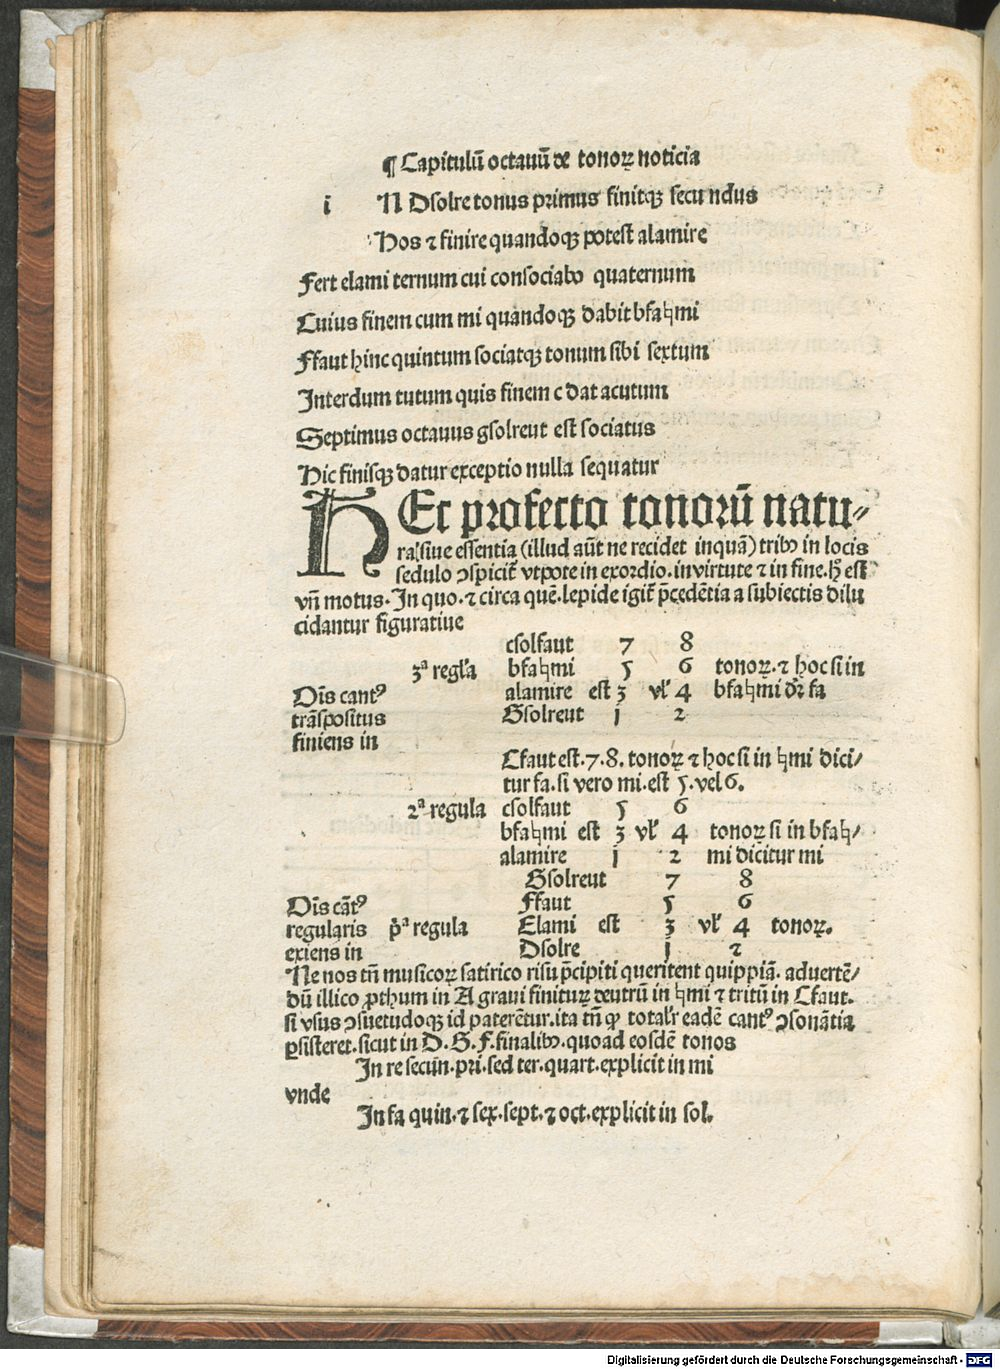 ¶ Capitulū octauū de tonoꝝ noticia
i N Dsolre tonus primus finitqꝫ secundus
Hos ⁊ finire quandoqꝫ potest alamire
Fert elami ternum cui consociabo quaternum
Cuius finem cum mi quandoqꝫ dabit bfa♮mi
Ffaut hinc quintum sociatqꝫ tonum sibi sextum
Interdum tutum quis finem c dat acutum
Septimus octauus gsolreut est sociatus
Hic finisqꝫ datur exceptio nulla sequatur
HEc profecto tonorū natu⸗
ra siue essentia (illud aūt ne recidet inquā) tribꝰ in locis
sedulo ꝯspicit̄ vtpote in exordio.in virtute ⁊ in fine.hꝫ est
vn̄ motus.In quo.⁊ circa quē.lepide igit̄ p̄cedētia a subiectis dilu
cidantur figuratiue
csolfaut 7 8
3ª regl̓a bfa♮mi 5 6 tonoꝝ.⁊ hoc si in
Oīs cantꝰ alamire est 3 vl̓ 4 bfa♮mi dr̄ fa
trāspositus Gsolreut 1 2
finiens in
Cfaut est.7.8.tonoꝝ ⁊ hoc si in ♮mi dici⸗
tur fa.si vero mi.est 5.vel 6.
2ª regula csolfaut 5 6
bfa♮mi est 3 vl̓ 4 tonoꝝ si in bfa♮⸗
alamire 1 2 mi dicitur mi
Gsolreut 7 8
Oīs cātꝰ Ffaut 5 6
regularis p̄ª regula Elami est 3 vl̓ 4 tonoꝝ.
exiens in Dsolre 1 2
Ne nos tn̄ musicoꝝ satirico risu p̄cipiti queritent quippiā.aduertē⸗
dū illico ꝓthum in A graui finituꝝ deutrū in ♮mi ⁊ tritū in Cfaut.
si vsus ꝯsuetudoqꝫ id paterētur.ita tn̄ ꝙ total̓r eadē cantꝰ ꝯsonātia
ꝑsisteret.sicut in D.G.F.finalibꝰ.quoad eosdē tonos
In re secūn.pri.sed ter.quart.explicit in mi
vnde
In fa quin.⁊ sex.sept.⁊ oct.explicit in sol.
Digitalisierung gefördert durch die Deutsche Forschungsgemeinschaft - DFG